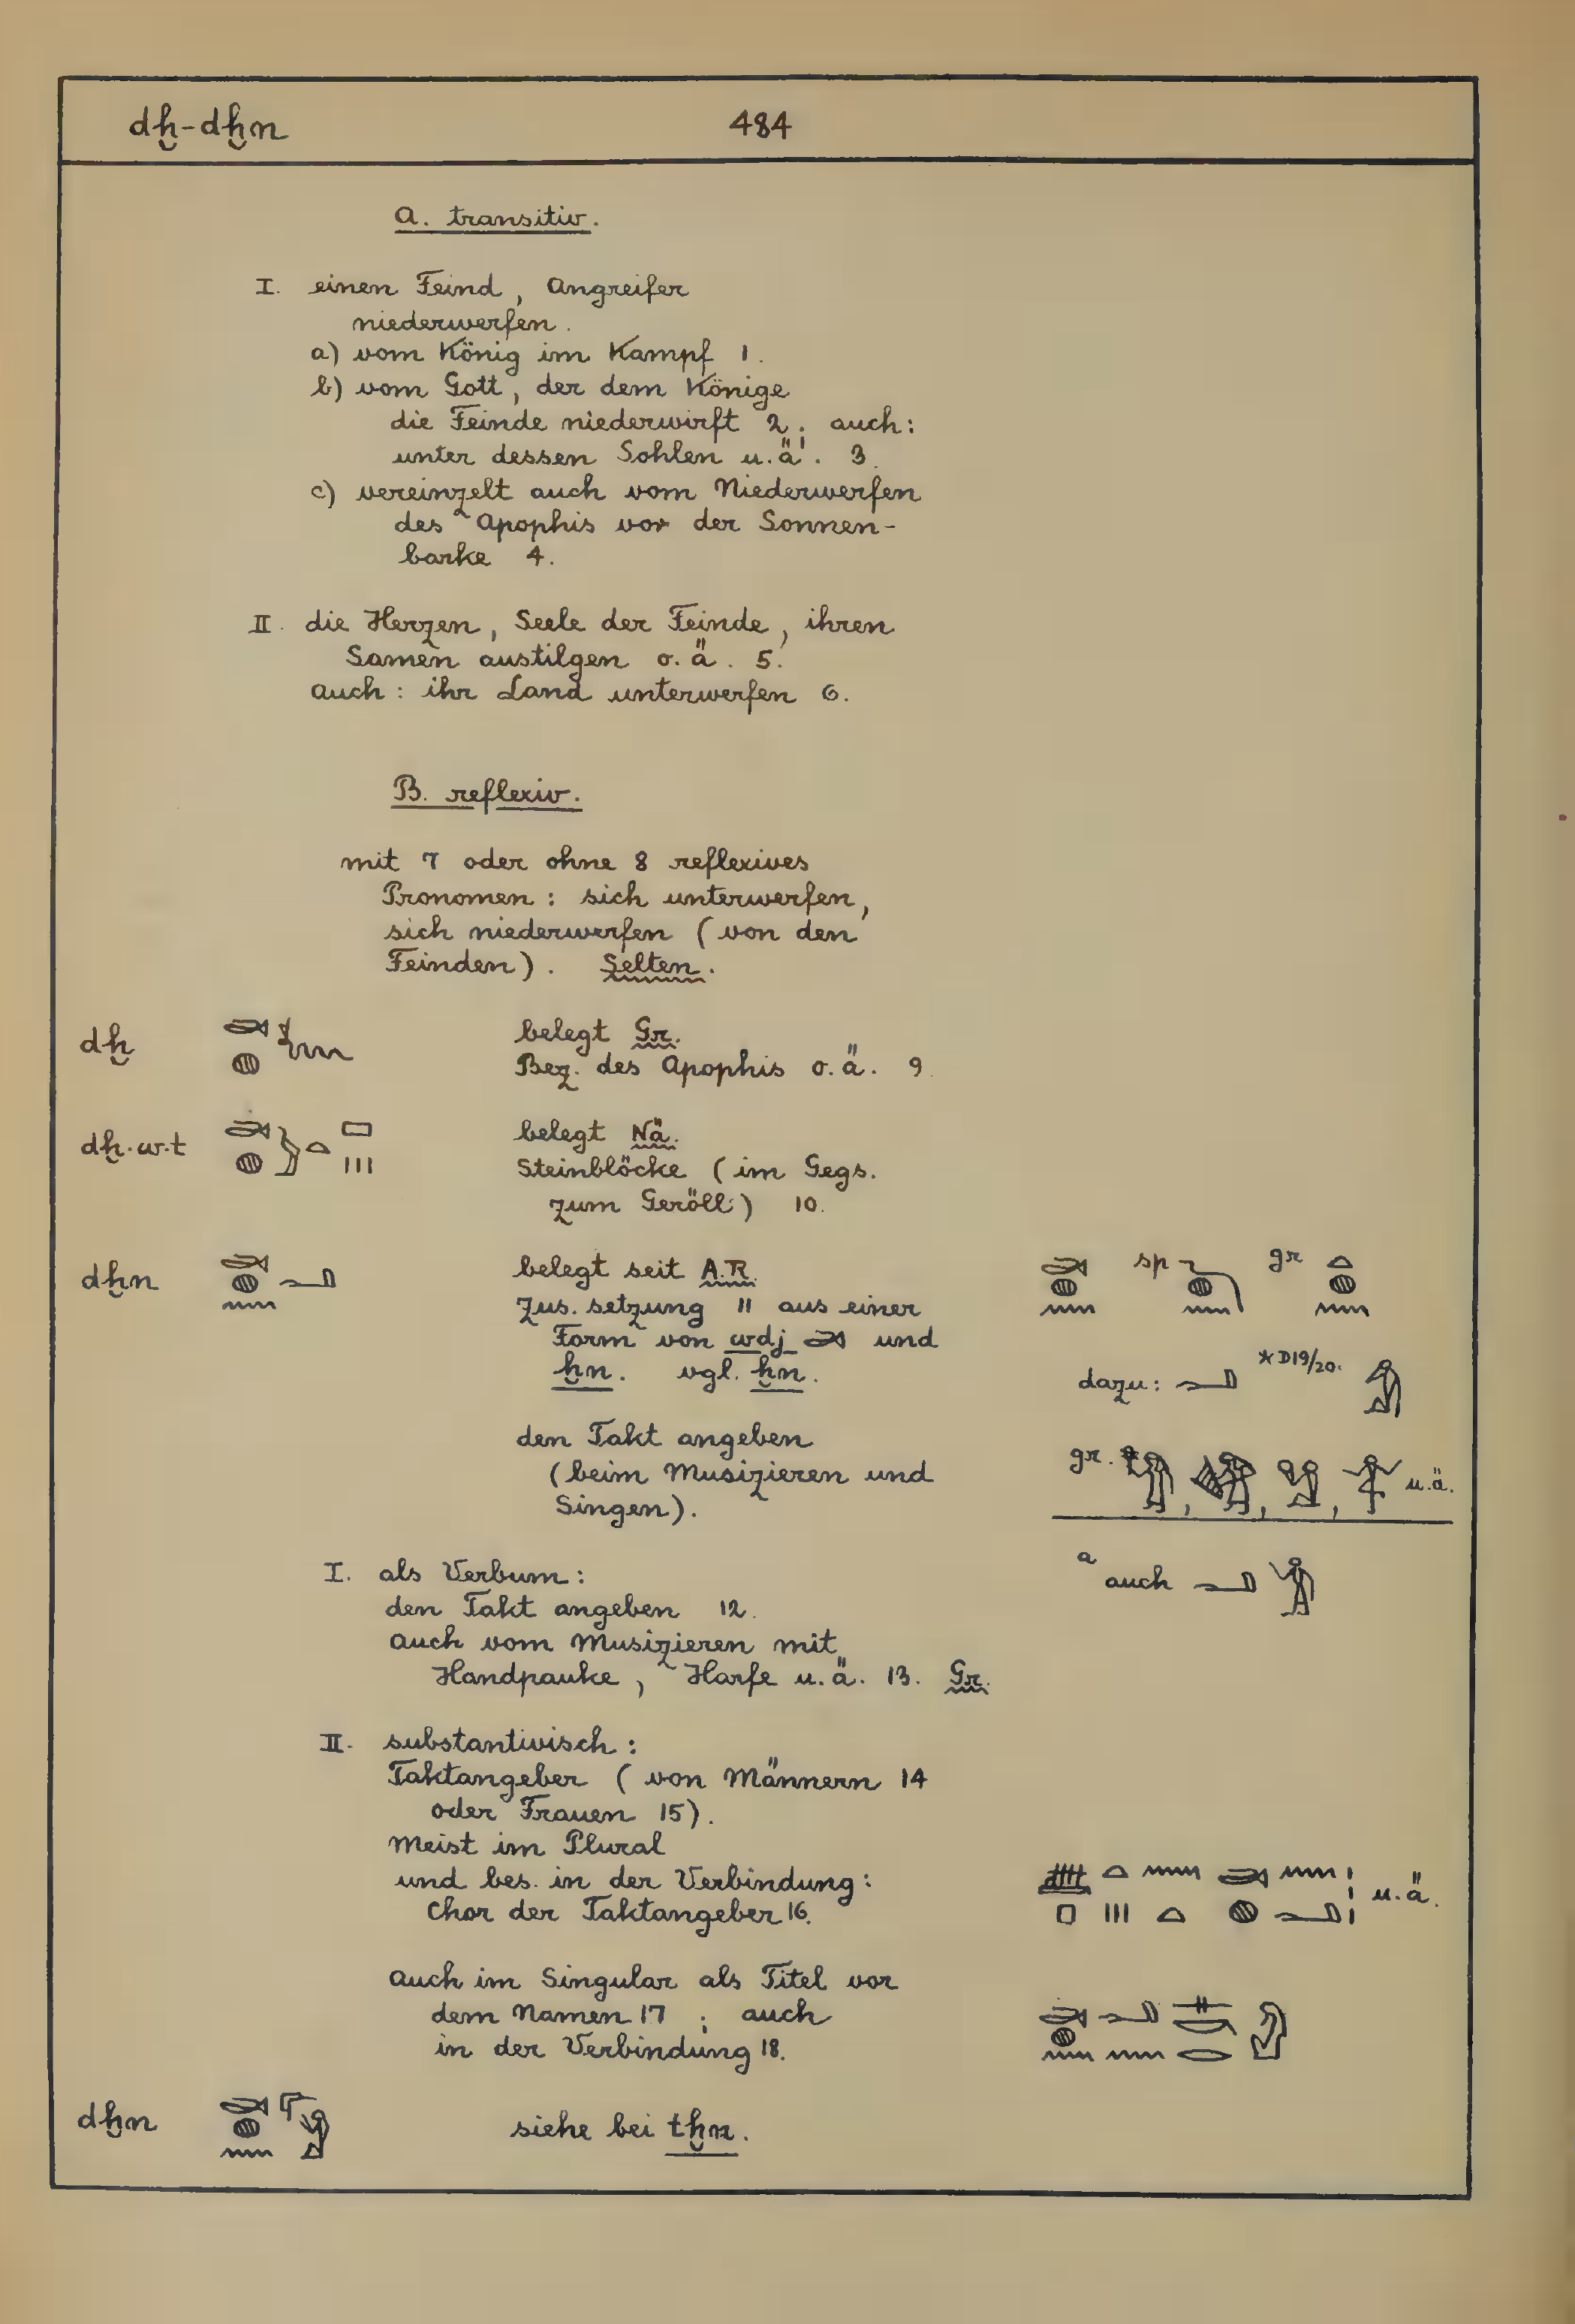 dḫ-dḫn 484
A. transitiv.
I. einen Feind, Angreifer
niederwerfen.
a) vom König im Kampf 1.
b) vom Gott, der dem Könige
die Feinde niederwirft 2; auch:
unter dessen Sohlen u.ä. 3.
c) vereinzelt auch vom Niederwerfen
des Apophis vor der Sonnen-
barke 4.
II. die Herzen, Seele der Feinde, ihren
Samen austilgen o.ä. 5.
auch: ihr Land unterwerfen 6.
B. reflexiv.
mit 7 oder ohne 8 reflexives
Pronomen: sich unterwerfen,
sich niederwerfen (von den
Feinden). Selten.
dḫ belegt Gr.
Bez. des Apophis o.ä. 9.
dḫ.w.t belegt Nä.
Steinblöcke (im Gegs.
zum Geröll) 10.
dḫn belegt seit A.R. sp gr
Zus. setzung 11 aus einer
Form von wdj und
ḫn. vgl. ḫn.
dazu: * D19/20.
den Takt angeben
(beim Musizieren und
Singen).
gr. , , , u.ä.
I. als Verbum:
den Takt angeben 12.
auch vom Musizieren mit
Handpauke, Harfe u.ä. 13. Gr.
a auch
II. substantivisch:
Taktangeber (von Männern 14
oder Frauen 15).
meist im Plural
und bes. in der Verbindung:
Chor der Taktangeber 16. u.ä.
auch im Singular als Titel vor
dem Namen 17; auch
in der Verbindung 18.
dḫn siehe bei tḫn.